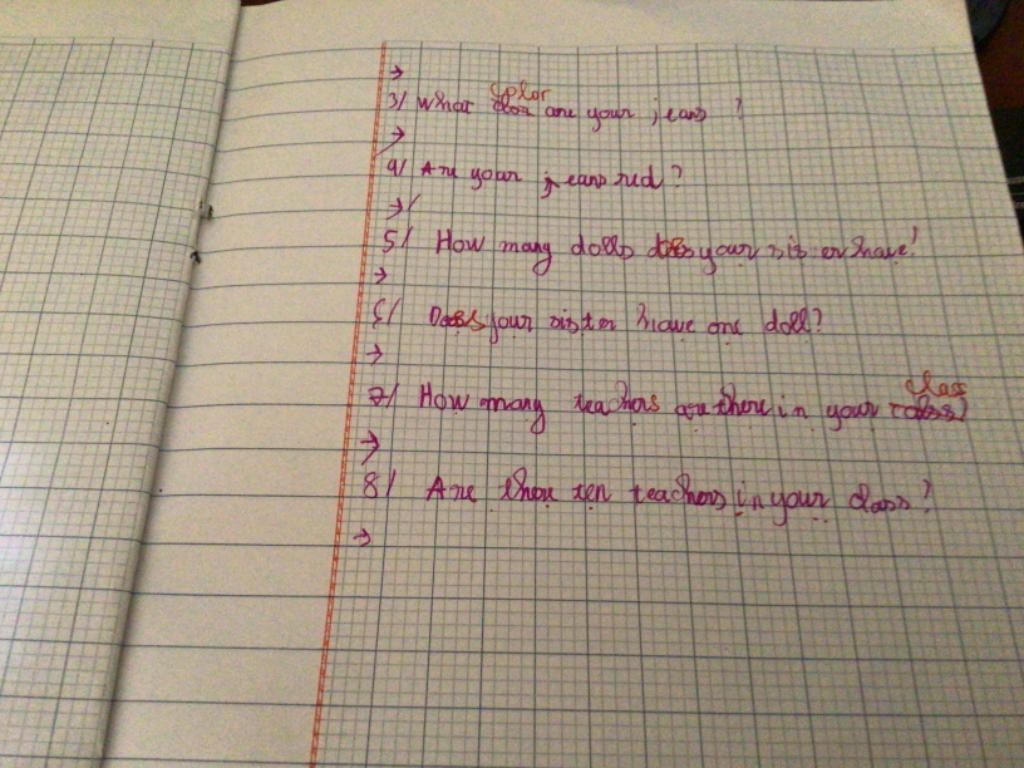 →
3/ What color are your jeans ?
→
4/ Are your jeans red ?
→/
5/ How many dolls does your sister have?
→
6/ Does your sister have one doll?
→
7/ How many teachers are there in your class?
→
8/ Are there ten teachers in your class?
→